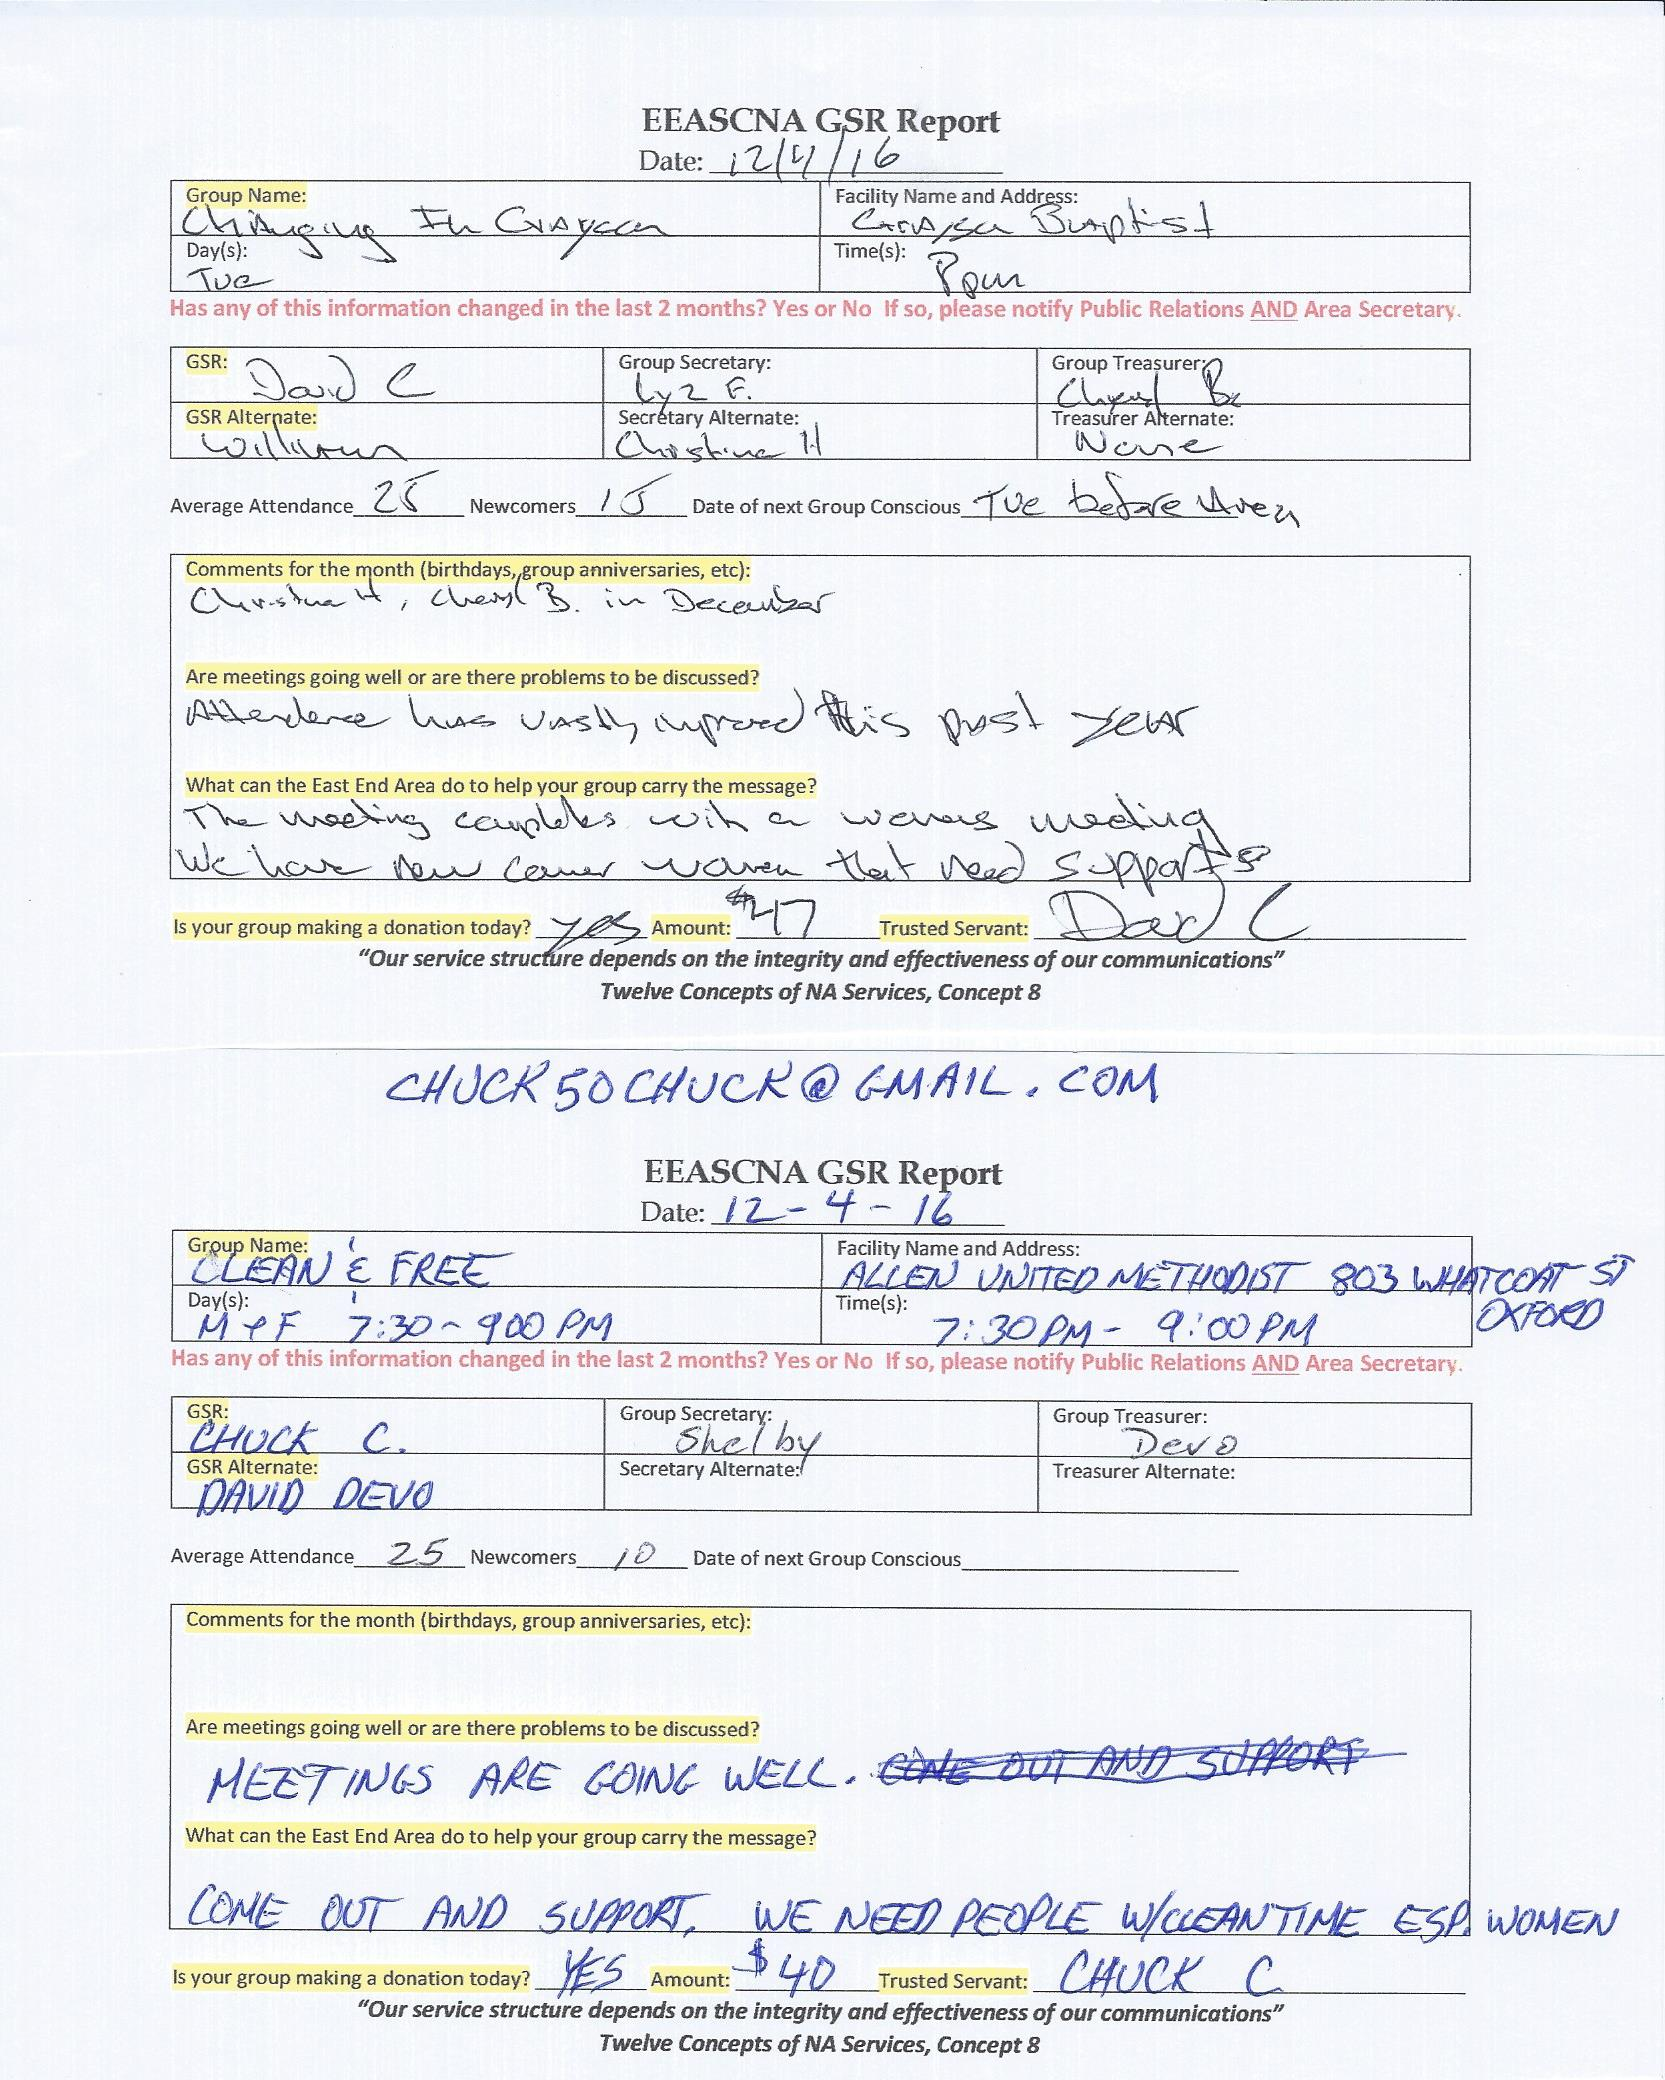 EEASCNA GSR Report
Date: 12/4/16
Group Name: Facility Name and Address:
Changing In Grayson Grayson Baptist
Day(s): Time(s):
Tue 8pm
Has any of this information changed in the last 2 months? Yes or No If so, please notify Public Relations AND Area Secretary.
GSR: David C Group Secretary: Group Treasurer:
Lyz F. Cheryl B.
GSR Alternate: Secretary Alternate: Treasurer Alternate:
William Christina H None
Average Attendance 25 Newcomers 15 Date of next Group Conscious Tue before Area
Comments for the month (birthdays, group anniversaries, etc):
Christina H, Cheryl B. in December
Are meetings going well or are there problems to be discussed?
Attendence has vastly improved this past year
What can the East End Area do to help your group carry the message?
The meeting with a womens meeting
We have new comer women that need support
Is your group making a donation today? yes Amount: $47 Trusted Servant: David C
“Our service structure depends on the integrity and effectiveness of our communications”
Twelve Concepts of NA Services, Concept 8
CHUCK50CHUCK@GMAIL.COM
EEASCNA GSR Report
Date: 12-4-16
Group Name: Facility Name and Address:
CLEAN & FREE ALLEN UNITED METHODIST 803 WHATCOAT ST
Day(s): Time(s): OXFORD
M & F 7:30-900 PM 7:30PM - 9:00PM
Has any of this information changed in the last 2 months? Yes or No If so, please notify Public Relations AND Area Secretary.
GSR: Group Secretary: Group Treasurer:
CHUCK C. Shelby Devo
GSR Alternate: Secretary Alternate: Treasurer Alternate:
DAVID DEVO
Average Attendance 25 Newcomers 10 Date of next Group Conscious
Comments for the month (birthdays, group anniversaries, etc):
Are meetings going well or are there problems to be discussed?
MEETINGS ARE GOING WELL. COME OUT AND SUPPORT
What can the East End Area do to help your group carry the message?
COME OUT AND SUPPORT, WE NEED PEOPLE W/CLEANTIME ESP. WOMEN
Is your group making a donation today? YES Amount: $40 Trusted Servant: CHUCK C
“Our service structure depends on the integrity and effectiveness of our communications”
Twelve Concepts of NA Services, Concept 8